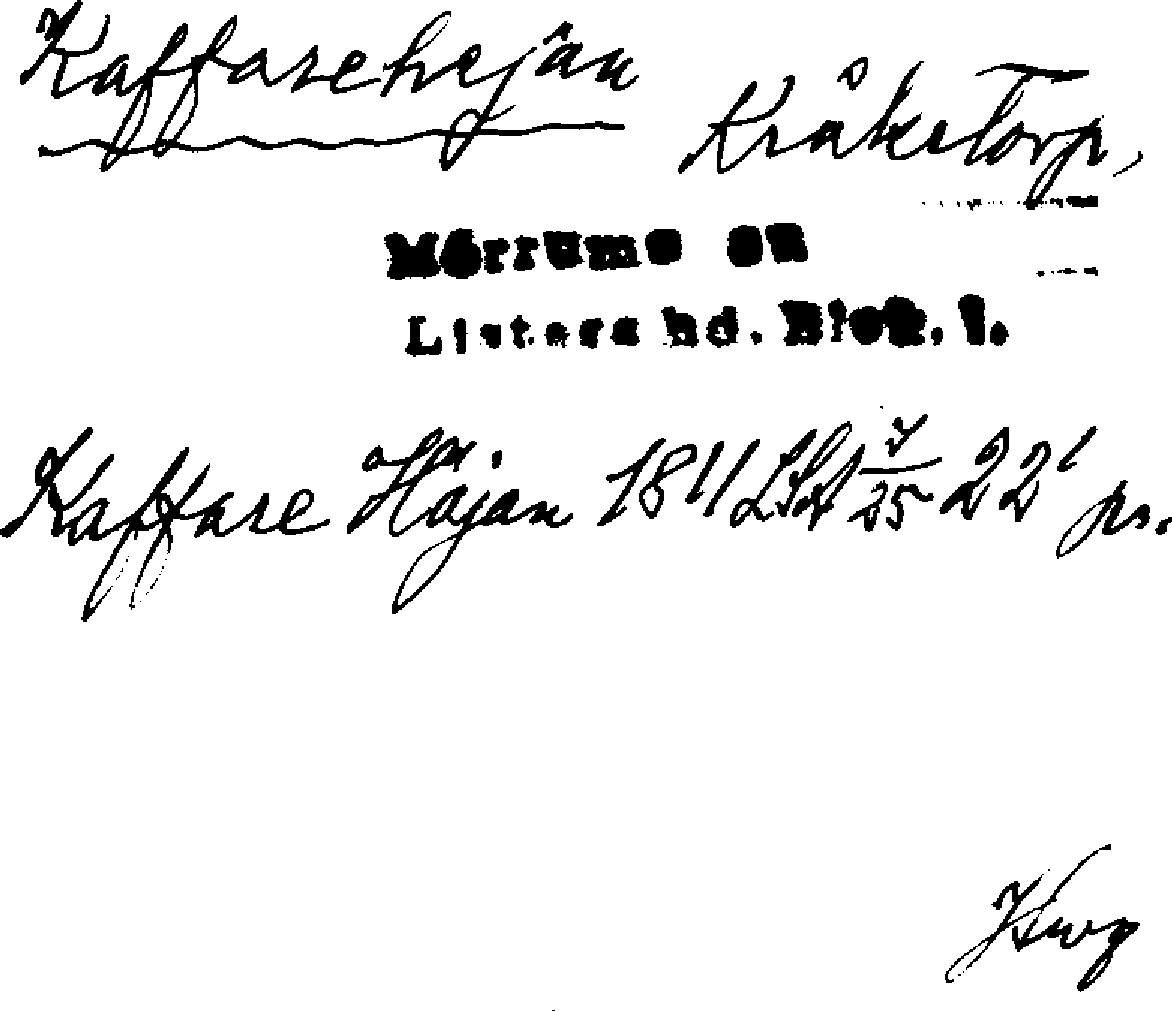 Kaffarehejan Kråketorp,
Mörrums sn
Listers hd. Blek. l.
Kaffare Häjan 1811 LSA 22' ps.